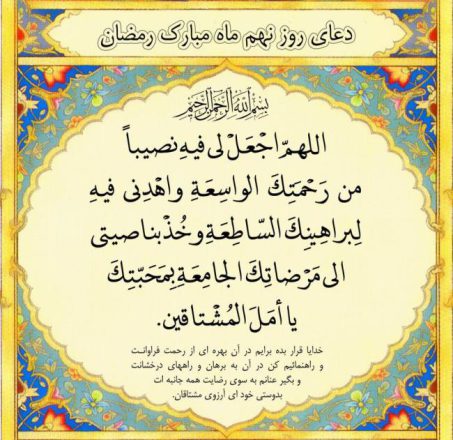 دعای روز نهم ماه مبارک رمضان
بسم الله الرحمن الرحیم
اللهمّ اجْعَلْ لی فیهِ نصیباً
من رَحْمَتِكَ الواسِعَةِ واهْدِنی فیهِ
لِبراهینِكَ السّاطِعَةِ وخُذْ بناصیتی
الی مَرْضاتِكَ الجامِعَةِ بِمَحَبّتِكَ
یا أمَلَ المُشْتاقین.
خدایا قرار بده برایم در آن بهره ای از رحمت فراوانت
و راهنمائیم کن در آن به برهان و راههای درخشانت
و بگیر عنانم به سوی رضایت همه جانبه ات
بدوستی خود ای آرزوی مشتاقان.